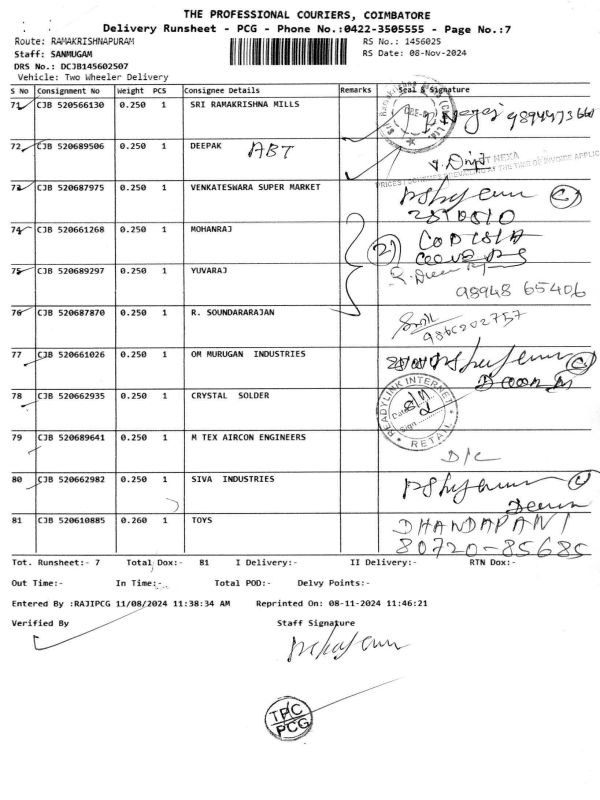 THE PROFESSIONAL COURIERS, COIMBATORE
Delivery Runsheet - PCG - Phone No.:0422-3505555 - Page No.:7
Route: RAMAKRISHNAPURAM RS No.: 1456025
Staff: SANMUGAM RS Date: 08-Nov-2024
DRS No.: DCJB145602507
Vehicle: Two Wheeler Delivery
S No Consignment No Weight PCS Consignee Details Remarks Seal & Signature
71 CJB 520566130 0.250 1 SRI RAMAKRISHNA MILLS
72 CJB 520689506 0.250 1 DEEPAK ABT
NEXA
73 CJB 520687975 0.250 1 VENKATESWARA SUPER MARKET
2510510
74 CJB 520661268 0.250 1 MOHANRAJ
CODISSIA
75 CJB 520689297 0.250 1 YUVARAJ
98948 65406
76 CJB 520687870 0.250 1 R. SOUNDARARAJAN
77 CJB 520661026 0.250 1 OM MURUGAN INDUSTRIES
78 CJB 520662935 0.250 1 CRYSTAL SOLDER
READYLINK INTERNET
Date
Sign
RETAIL
79 CJB 520689641 0.250 1 M TEX AIRCON ENGINEERS
D/C
80 CJB 520662982 0.250 1 SIVA INDUSTRIES
81 CJB 520610885 0.260 1 TOYS DHANDAPANI
80720-85685
Tot. Runsheet:- 7 Total Dox:- 81 I Delivery:- II Delivery:- RTN Dox:-
Out Time:- In Time:- Total POD:- Delvy Points:-
Entered By :RAJIPCG 11/08/2024 11:38:34 AM Reprinted On: 08-11-2024 11:46:21
Verified By Staff Signature
TPC
PCG